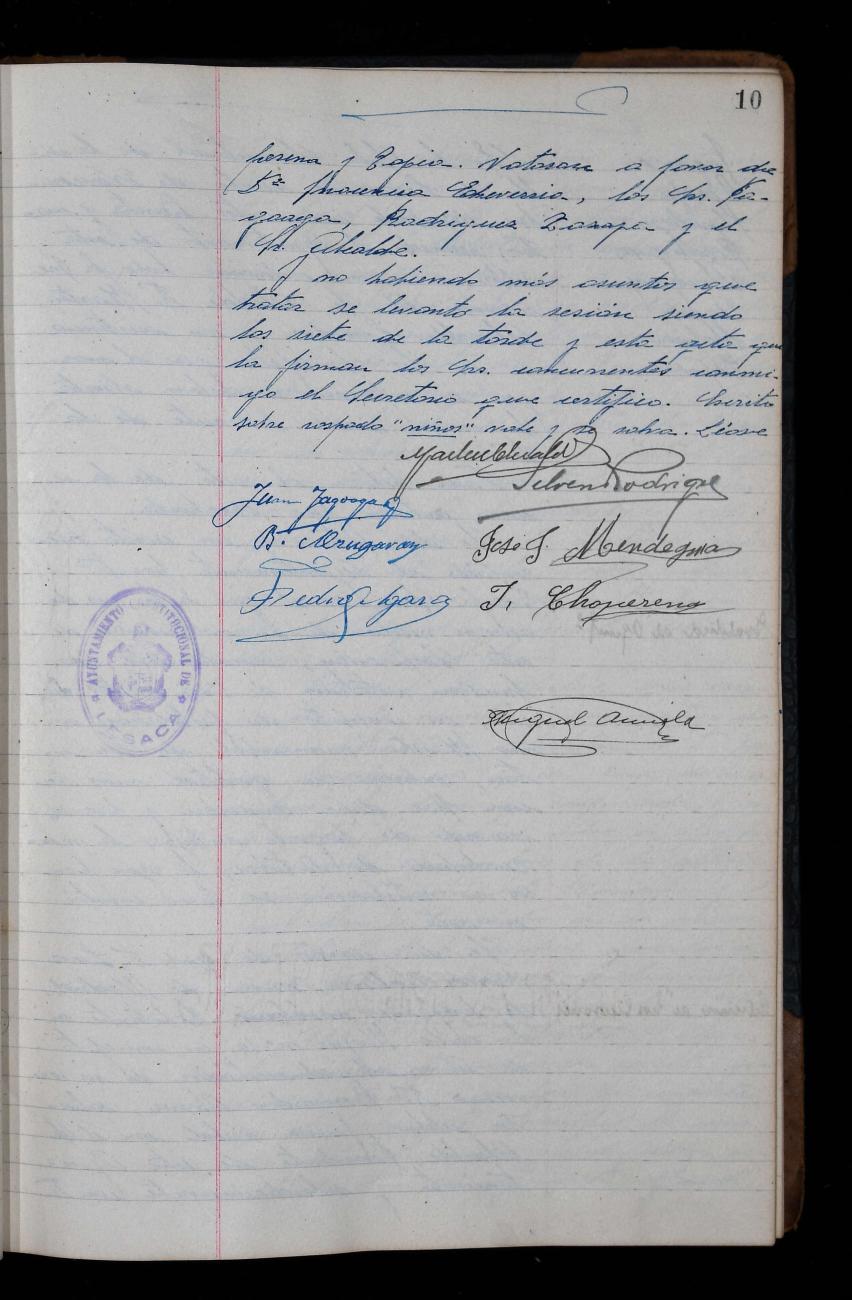 10
perena y Tapia. Votaron a favor de
Dª Echeverria, los Srs. Ya-
goaga, Rodriguez Zarapa y el
Sr. Alcalde.
Y no habiendo más asuntos que
tratar se levantó la sesión siendo
las siete de la tarde y esta acta que
la firman los Srs. concurrentes conmi-
go el Secretario que certifico. Escrito
sobre raspado "niños" vale y se salva. Léase
Silverio Rodriguez
Juan Yagoaga
B. José J. Mendegina
Pedro J. Choperena
Miguel
AYUNTAMIENTO CONSTITUCIONAL DE LESACA